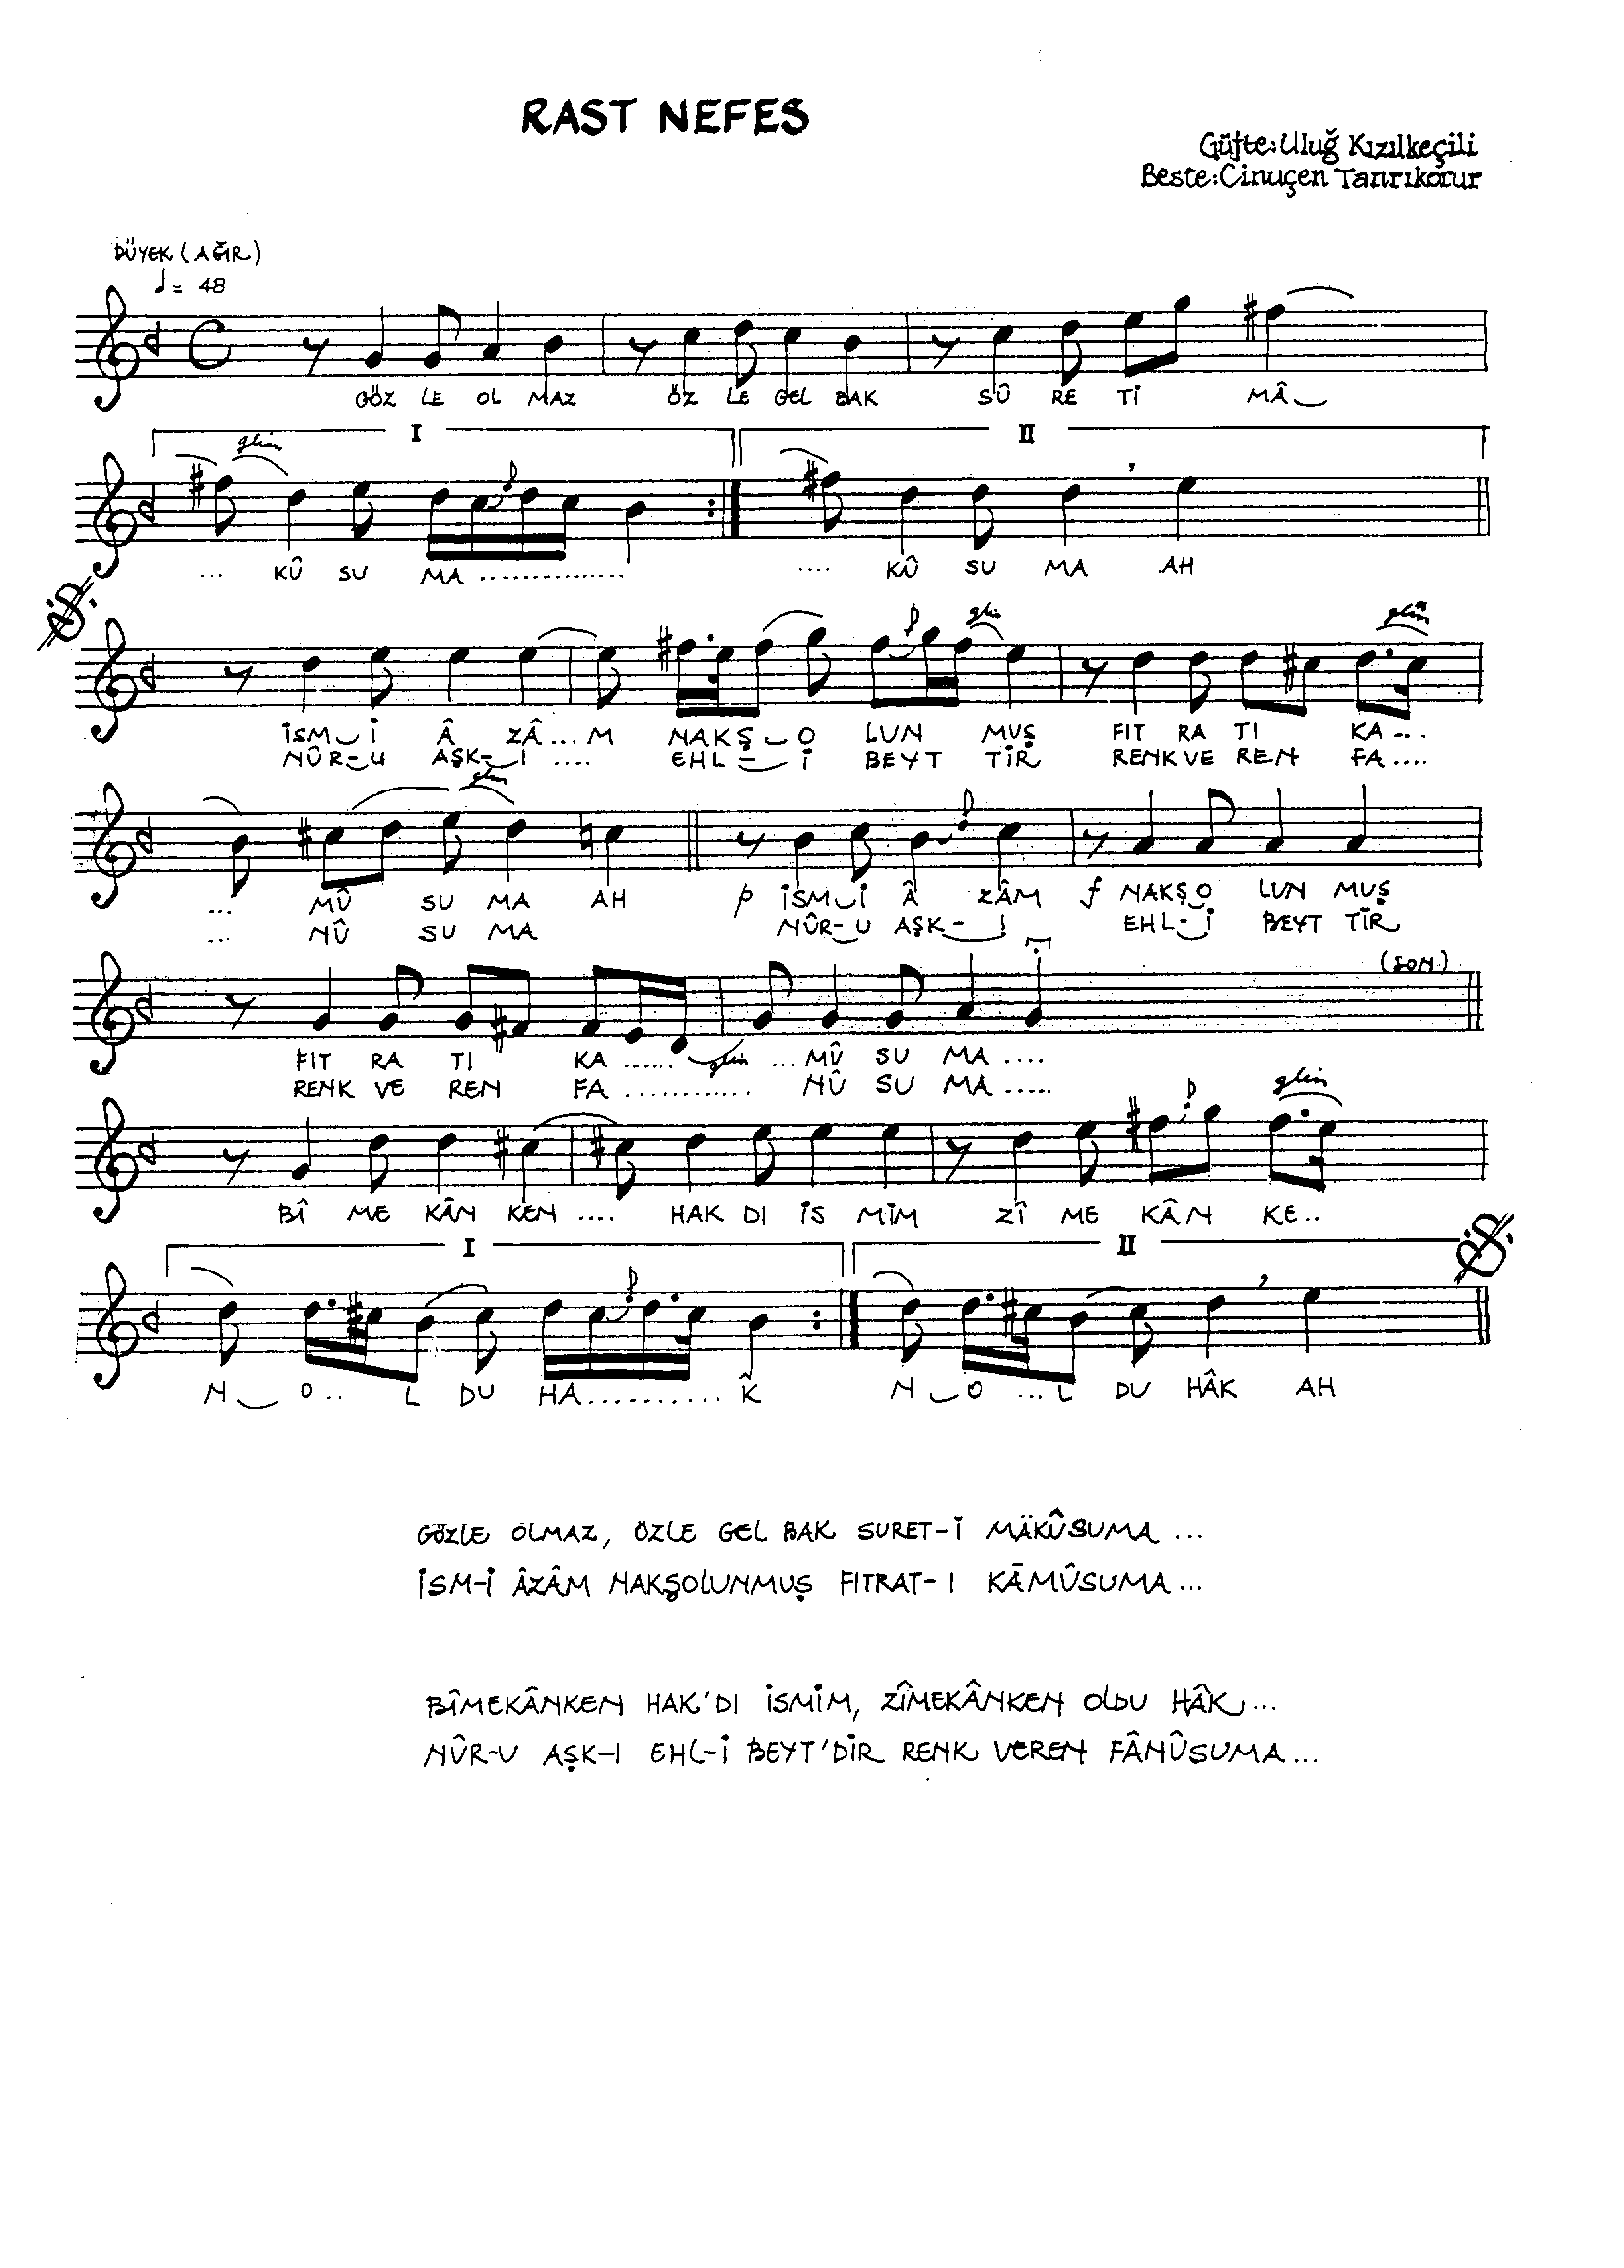 RAST NEFES
Güfte: Uluğ Kızılkeçili
Beste: Cinuçen Tanrıkorur
DÜYEK (AĞIR)
♩ = 48
GÖZ LE OL MAZ ÖZ LE GEL BAK SÛ RE Tİ MÂ
I II
glis
... KÛ SU MA .............. .... KÛ SU MA AH
glis glis
İSM İ Â ZÂ...M NAKŞ O LUN MUŞ FIT RA TI KA....
NÛR-U AŞK-I .... EHL-İ BEYT TİR RENK VE REN FA....
glis
... MÛ SU MA AH p İSM İ Â ZÂM f NAKŞ O LUN MUŞ
... NÛ SU MA NÛR-U AŞK-I EHL-İ BEYT TİR
(SON)
FIT RA TI KA ...... glis ...MÛ SU MA ....
RENK VE REN FA ........... NÛ SU MA .....
glis
BÎ ME KÂN KEN .... HAK DI İS MİM ZÎ ME KÂN KE..
I II
N O.. L DU HA...........K N O ...L DU HÂK AH
GÖZLE OLMAZ, ÖZLE GEL BAK SURET-İ MÄKÛSUMA ...
İSM-İ ÂZÂM NAKŞOLUNMUŞ FITRAT-I KĀMÛSUMA...
BÎMEKÂNKEN HAK'DI İSMİM, ZÎMEKÂNKEN OLDU HÂK...
NÛR-U AŞK-I EHL-İ BEYT'DİR RENK VEREN FÂNÛSUMA...